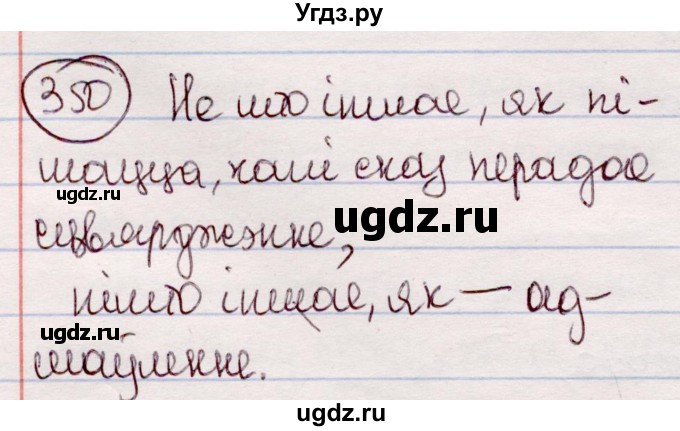 Угдз.ру
350 Не што іншае, як пі-
шацца, калі сказ перадае
сцвярджэнне,
нішто іншае, як — ад-
маўленне.
ugdz.ru
ugdz.ru
ugdz.ru
ugdz.ru
ugdz.ru